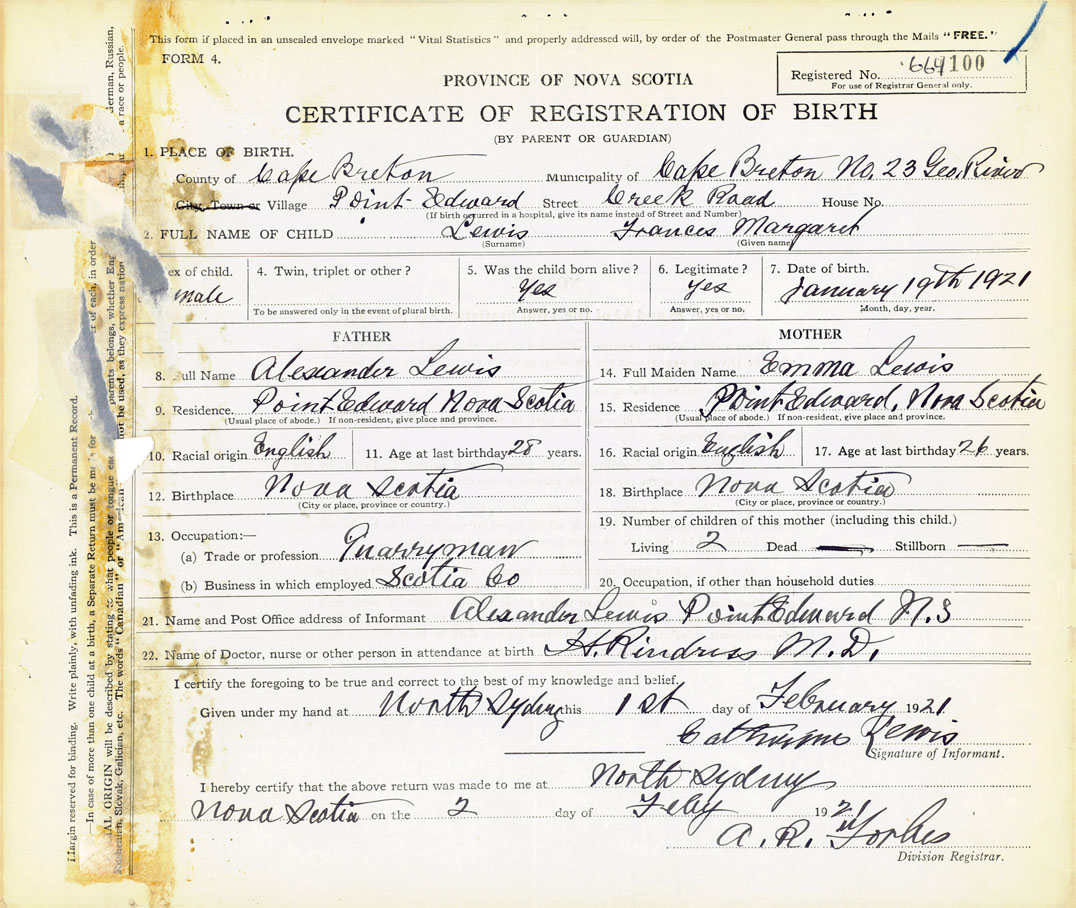 This form if placed in an unsealed envelope marked "Vital Statistics" and properly addressed will, by order of the Postmaster General pass through the Mails "FREE."
FORM 4.
Registered No. 664100
For use of Registrar General only.
PROVINCE OF NOVA SCOTIA
CERTIFICATE OF REGISTRATION OF BIRTH
(BY PARENT OR GUARDIAN)
1. PLACE OF BIRTH.
County of Cape Breton Municipality of Cape Breton No. 23 Geo. River
City, Town or Village Point Edward Street Creek Road House No.
(If birth occurred in a hospital, give its name instead of Street and Number)
2. FULL NAME OF CHILD Lewis Frances Margaret
(Surname) (Given name)
ex of child. 4. Twin, triplet or other? 5. Was the child born alive? 6. Legitimate? 7. Date of birth.
male Yes Yes January 19th 1921
To be answered only in the event of plural birth. Answer, yes or no. Answer, yes or no. Month, day, year.
FATHER
8. Full Name Alexander Lewis
9. Residence. Point Edward Nova Scotia
(Usual place of abode.) If non-resident, give place and province.
10. Racial origin English 11. Age at last birthday 28 years.
12. Birthplace Nova Scotia
(City or place, province or country.)
13. Occupation:—
(a) Trade or profession Quarryman
(b) Business in which employed Scotia Co
MOTHER
14. Full Maiden Name Emma Lewis
15. Residence Point Edward, Nova Scotia
(Usual place of abode.) If non-resident, give place and province.
16. Racial origin English 17. Age at last birthday 26 years.
18. Birthplace Nova Scotia
(City or place, province or country.)
19. Number of children of this mother (including this child.)
Living 2 Dead — Stillborn —
20. Occupation, if other than household duties
21. Name and Post Office address of Informant Alexander Lewis Point Edward N.S
22. Name of Doctor, nurse or other person in attendance at birth H. Rindress M.D.
I certify the foregoing to be true and correct to the best of my knowledge and belief.
Given under my hand at North Sydney this 1st day of February 1921
Catherine Lewis
Signature of Informant.
I hereby certify that the above return was made to me at North Sydney
Nova Scotia on the 2 day of Feby 1921
A. R. Forbes
Division Registrar.
Margin reserved for binding. Write plainly, with unfading ink. This is a Permanent Record.
—In case of more than one child at a birth, a Separate Return must be for of each, in order
AL ORIGIN will be described by stating to what people or tongue parents belongs, whether
German, Russian,
Slovak, Galician, etc. The words "Canadian" or "American" not be used, as they express
a race or people.